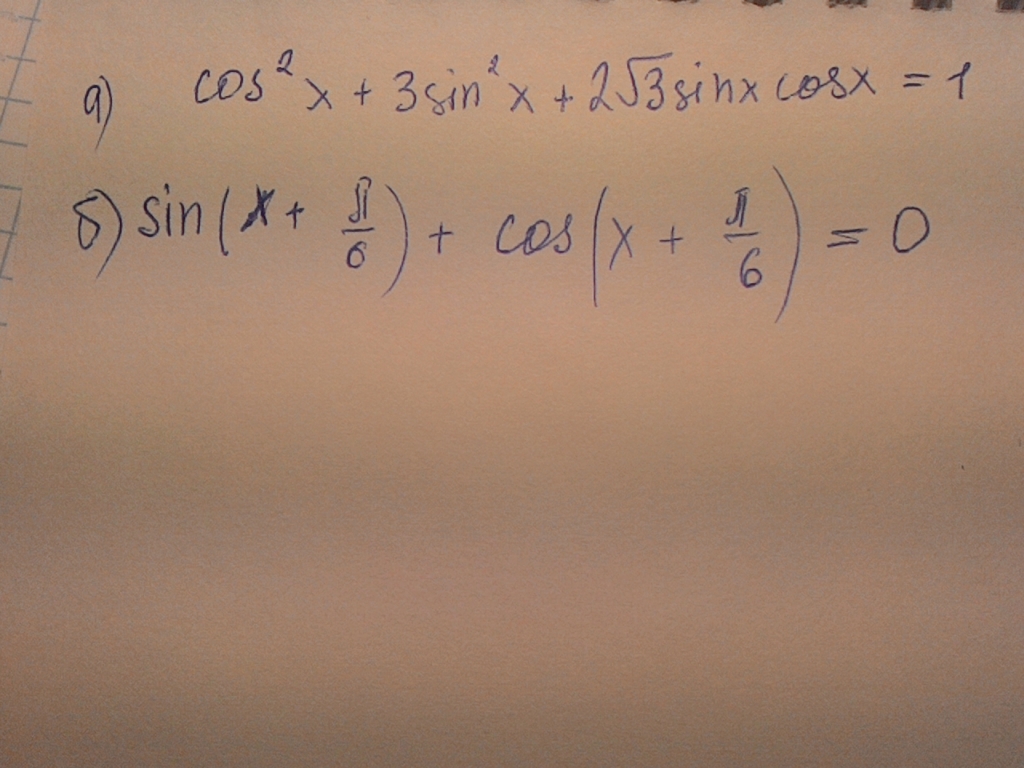 а) cos²x + 3sin²x + 2√3sinx cosx = 1
б) sin(x + π/6) + cos(x + π/6) = 0